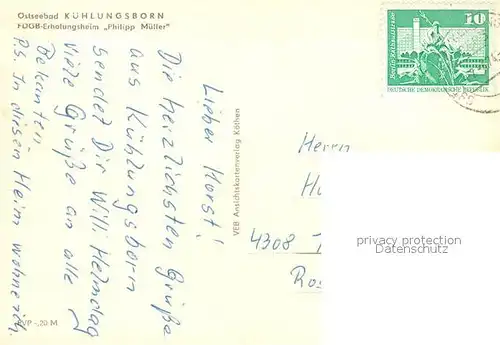 Ostseebad KÜHLUNGSBORN
FDGB-Erholungsheim „Philipp Müller"
Lieber Horst!
Die herzlichsten Grüße
aus Kühlungsborn
sendet Dir Willi Helmdag
viele Grüße an alle
Bekanten
P.S. In diesen Heim wohne ich.
EVP -,20 M
VEB Ansichtskartenverlag Köthen
10
DEUTSCHE DEMOKRATISCHE REPUBLIK
Herrn
4308
privacy protection
Datenschutz